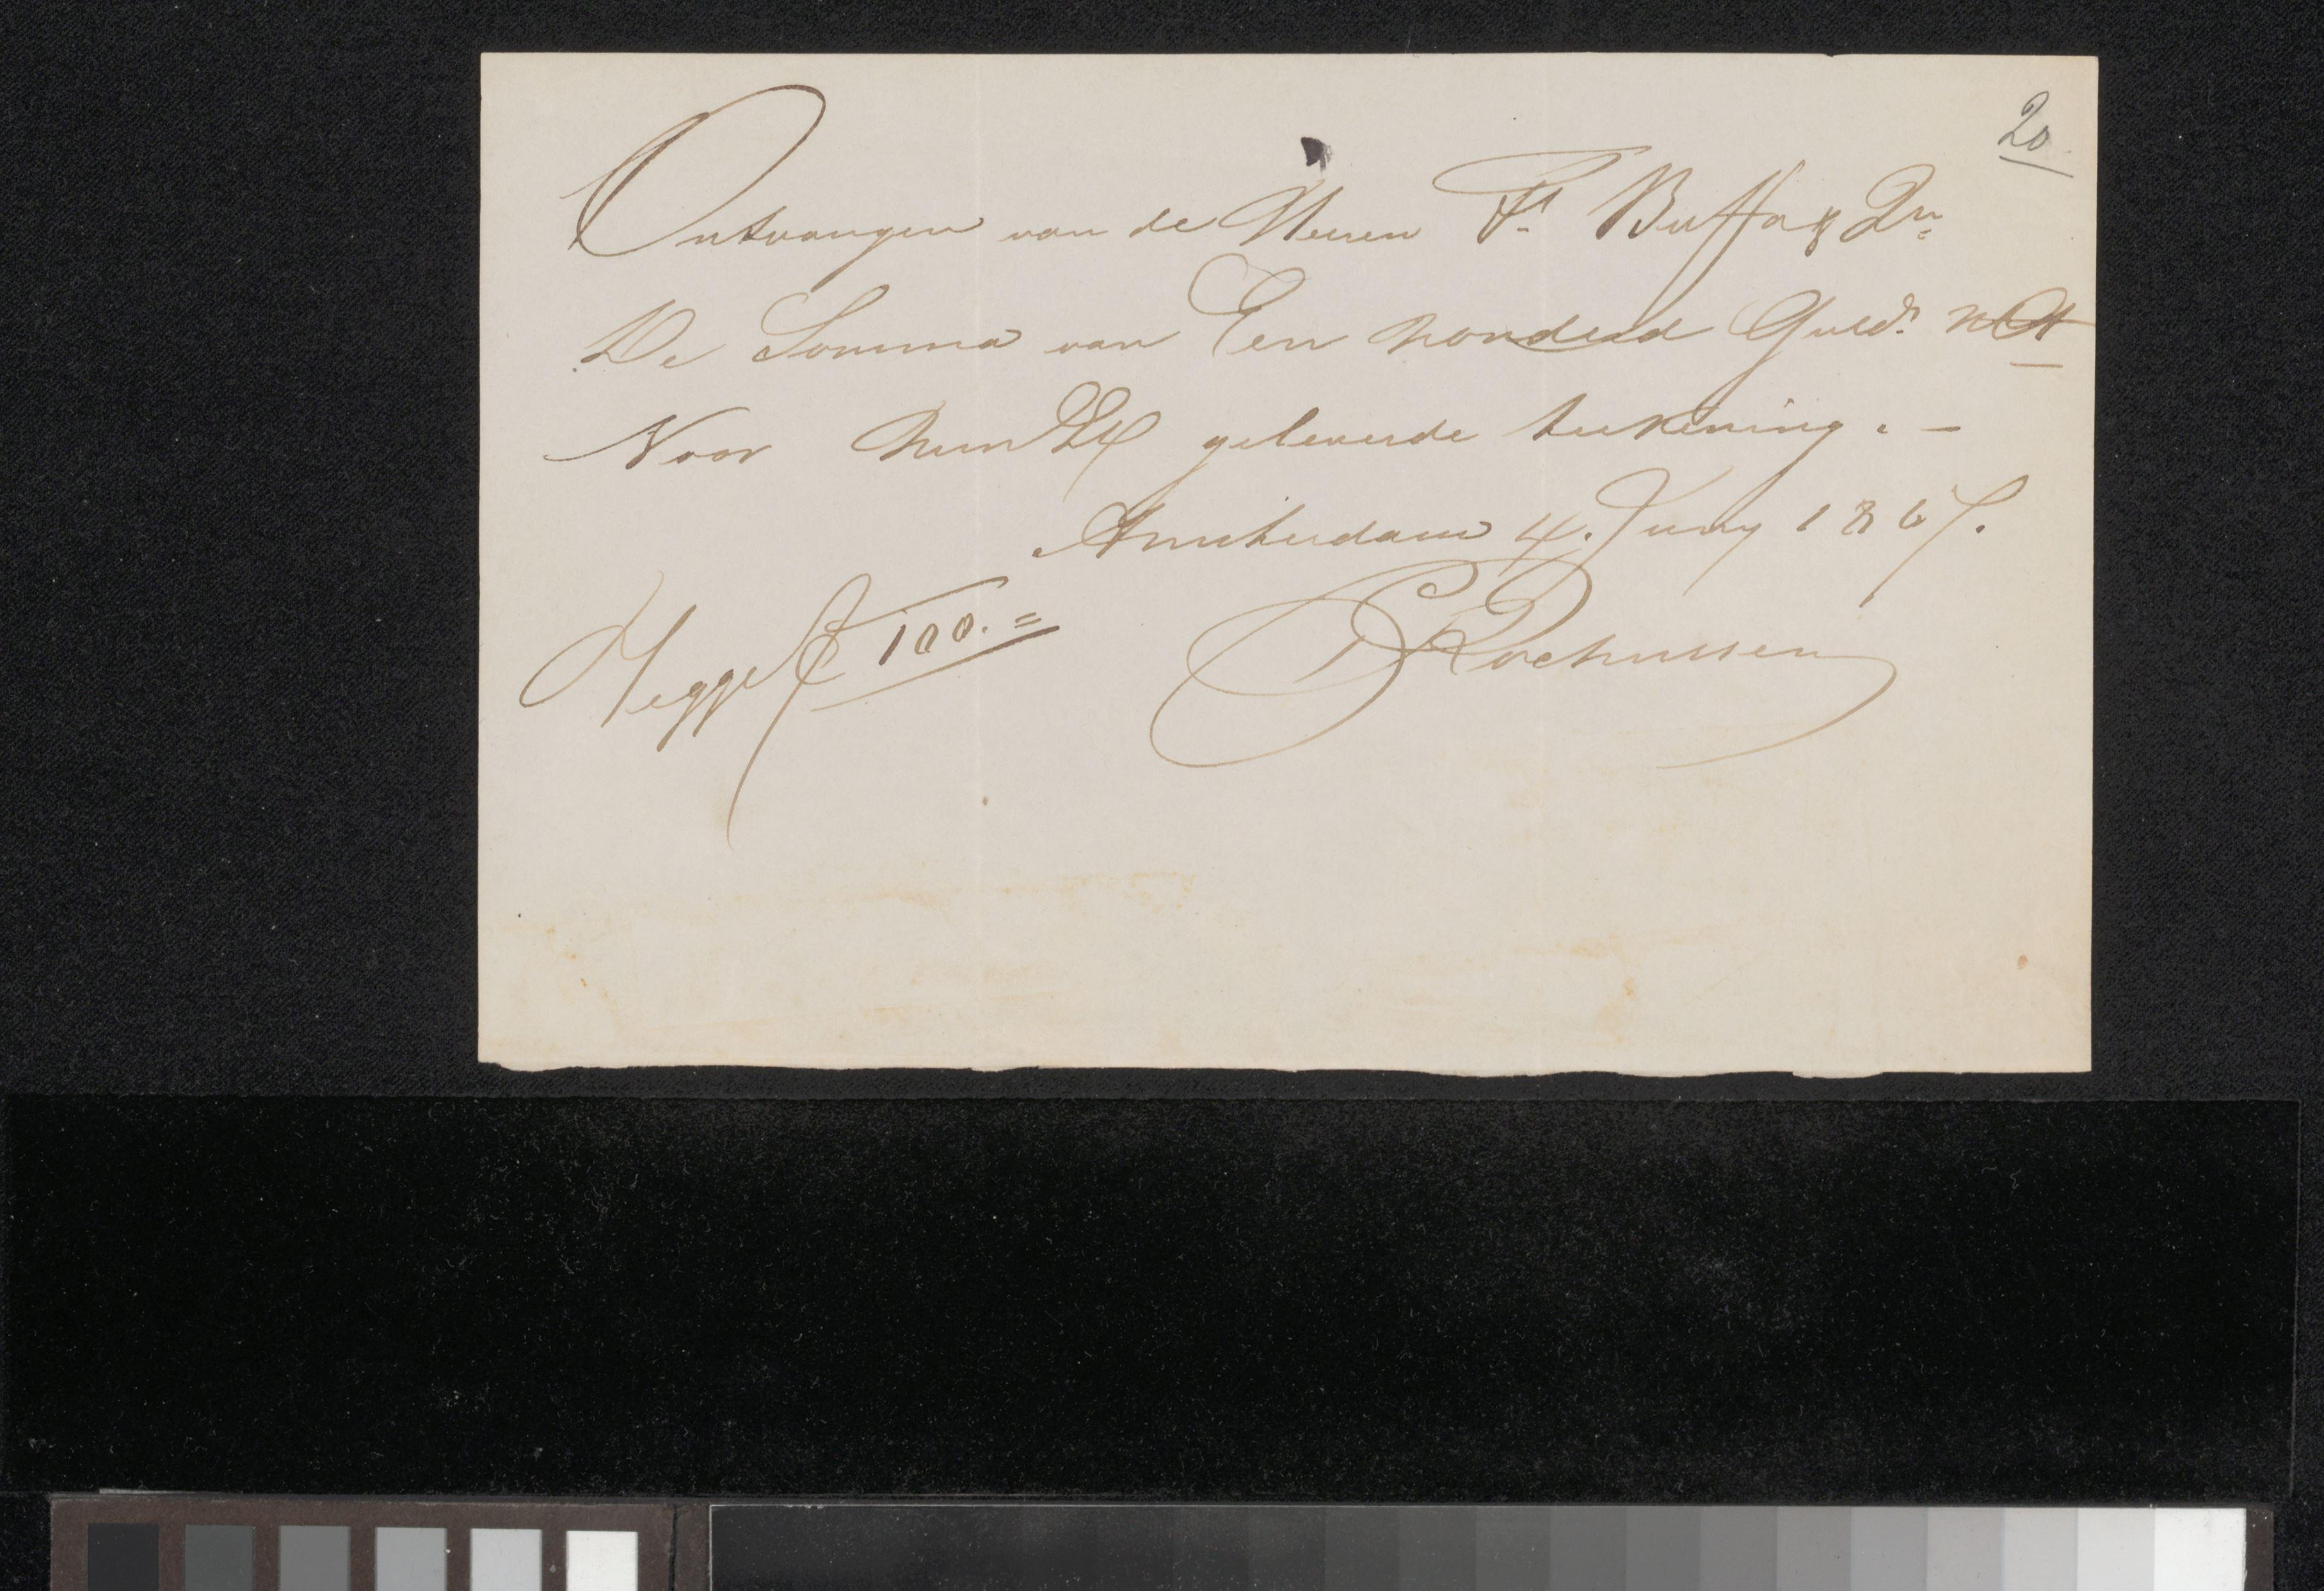 20
Ontvangen van de Heeren Fs. Buffa & Zn.
De Somma van Een honderd Guldn. net
Voor hun Ed geleverde teekening. –
Amsterdam 4. Juny 1867.
Zegge ƒ 100.=
C Rochussen